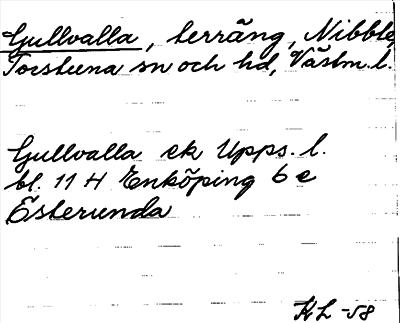 Gullvalla, terräng, Nibble,
Torstuna sn och hd, Västm. l.
Gullvalla ek Upps. l.
bl. 11 H Enköping 6 e
Österunda
KL -58